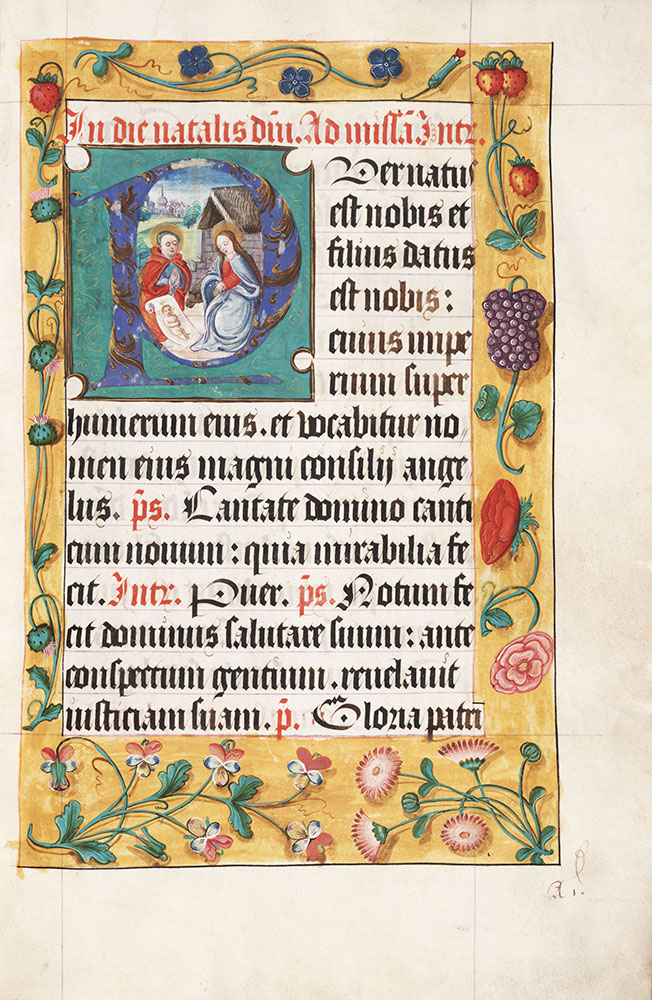 In die natalis dni. Ad missā. Intr.
Puer natus
est nobis et
filius datus
est nobis:
cuius impe
rium super
humerum eius. et vocabitur no
men eius magni consilij ange
lus. ps. Cantate domino canti
cum novum: quia mirabilia fe
cit. Intr. Puer. ps. Notum fe
cit dominus salutare suum: ante
conspectum gentium. revelavit
iusticiam suam. p. Gloria patri
A j.